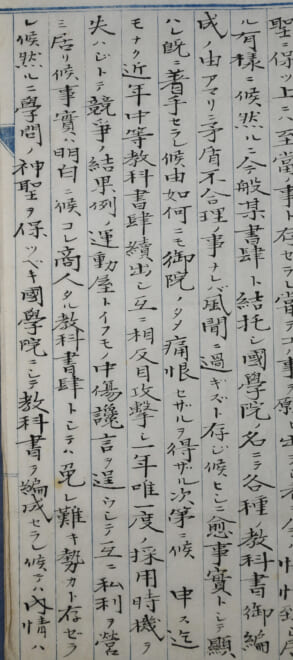 聖ニ保ツ上ニハ至當ノ事ト存セラレ
ル有樣ニ候然ルニ今般某書肆ト結托シ國學院ノ名ニテ各種ノ教科書御編
成ノ由アマリニ矛盾不合理ノ事ナレバ風聞ニ過ギズト存ジ候ヒシニ愈事實トシテ顯
ハレ既ニ着手セラレ候由如何ニモ御院ノタメ痛恨セザルヲ得ザル次第ニ候 申ス迄
モナク近年中等教科書肆續出シ互ニ相反目攻擊シ一年唯一度ノ採用時機ヲ
失ハジトテ競爭ノ結果例ノ運動屋トイフモノ中傷讒言ヲ逞ウシテ互ニ私利ヲ營
ミ居リ候事實ハ明白ニ候コレ商人タル教科書肆トシテハ免レ難キ勢カト存ゼラ
レ候然ルニ學問ノ神聖ヲ保ツベキ國學院ニシテ教科書ヲ編成セラレ候テハ內情ハ